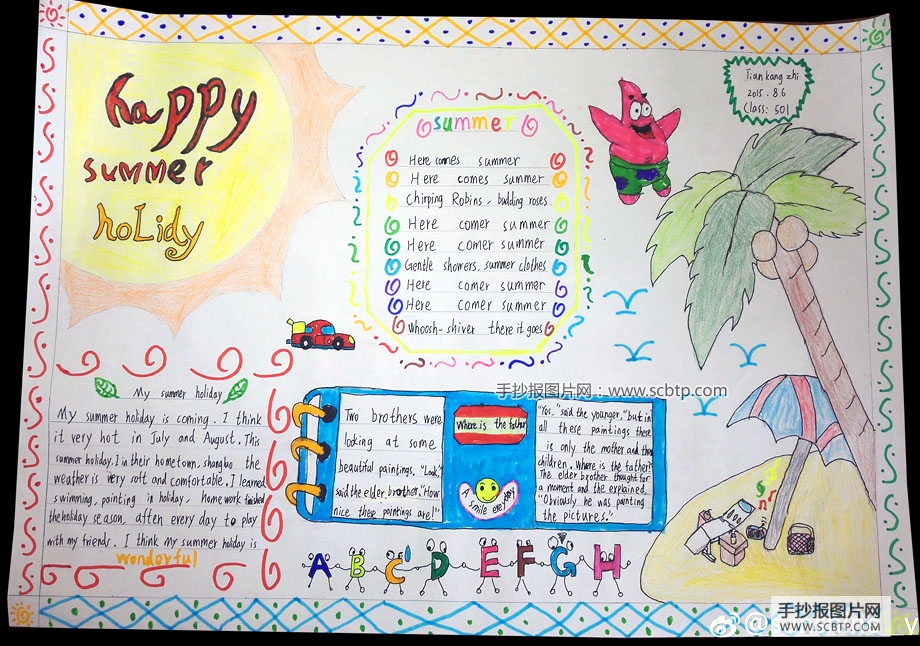 happy
summer
hoLidy
summer
Here comes summer
Here comes summer
Chirping Robins, budding roses
Here comer summer
Here comer summer
Gentle showers, summer clothes
Here comer summer
Here comer summer
whoosh-shiver there it goes
Tian kang zhi
2015.8.6
Class: 501
手抄报图片网:www.scbtp.com
My summer holiday
My summer holiday is coming. I think
it very hot in July and August. This
summer holiday. I in their hometown, shangbao the
weather is very soft and comfortable. I learned
swimming, pointing in holiday, home work finished
the holiday season, aften every day to play
with my friends. I think my summer holiday is
wonderful
Two brothers were
looking at some
beautiful paintings. "Look,"
said the elder brother. "How
nice these paintings are!"
Where is the father
A smile everyday
"Yes," said the younger, "but in
all these paintings there
is only the mother and the
children. Where is the father?"
The elder brother thought for
a moment and the explained,
"Obviously he was painting
the pictures."
A B C D E F G H
手抄报图片网
WWW.SCBTP.COM